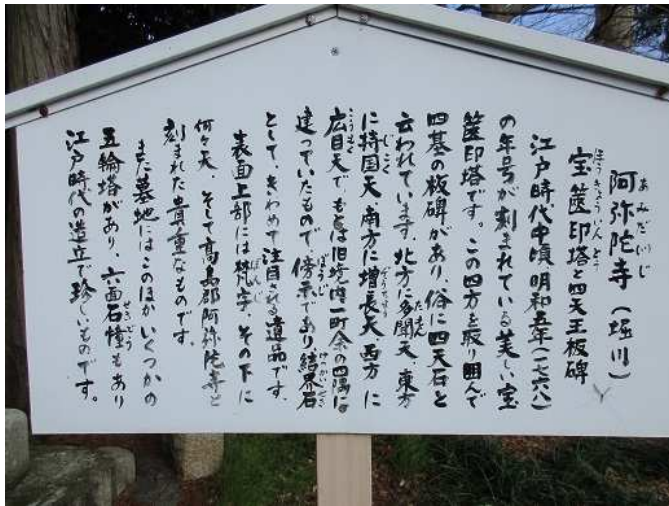 阿弥陀寺（堀川）
宝篋印塔と四天王板碑
江戸時代中頃明和五年（一七六八）
の年号が刻まれている美しい宝
篋印塔です。この四方を取り囲んで
四基の板碑があり、俗に四天石と
云われています。北方に多聞天、東方
に持国天、南方に増長天、西方に
広目天で、もとは旧境内一町余の四隅に
建っていたもので、傍示であり、結界石
として、きわめて注目される遺品です。
表面上部には梵字、その下に
何々天、そして高島郡阿弥陀寺と
刻まれた貴重なものです。
また墓地にはこのほかいくつかの
五輪塔があり、六面石幢もあり
江戸時代の造立で珍しいものです。